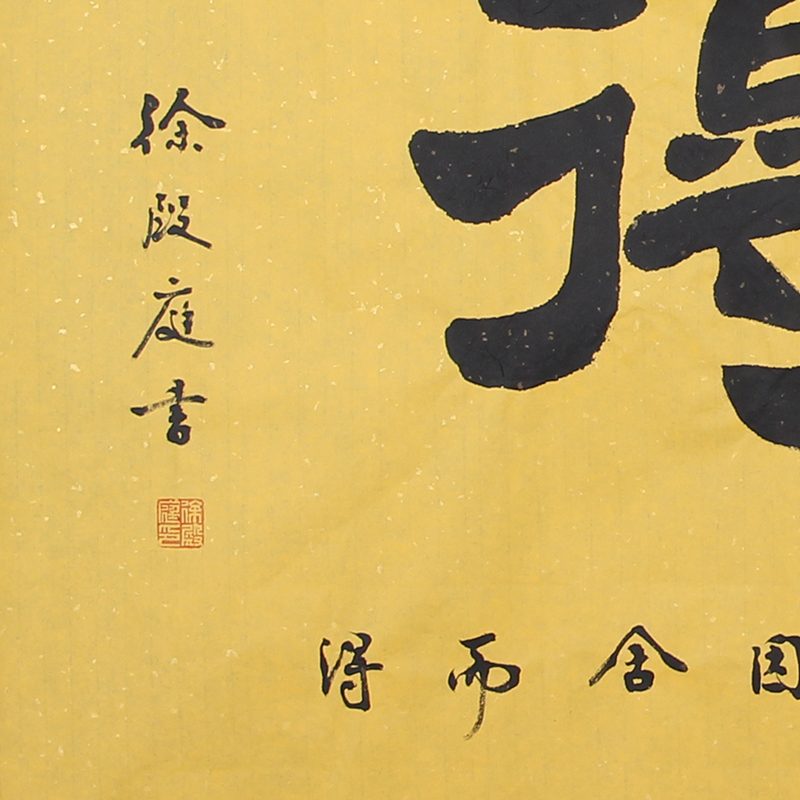 因舍而得
徐殿庭書
徐殿庭印